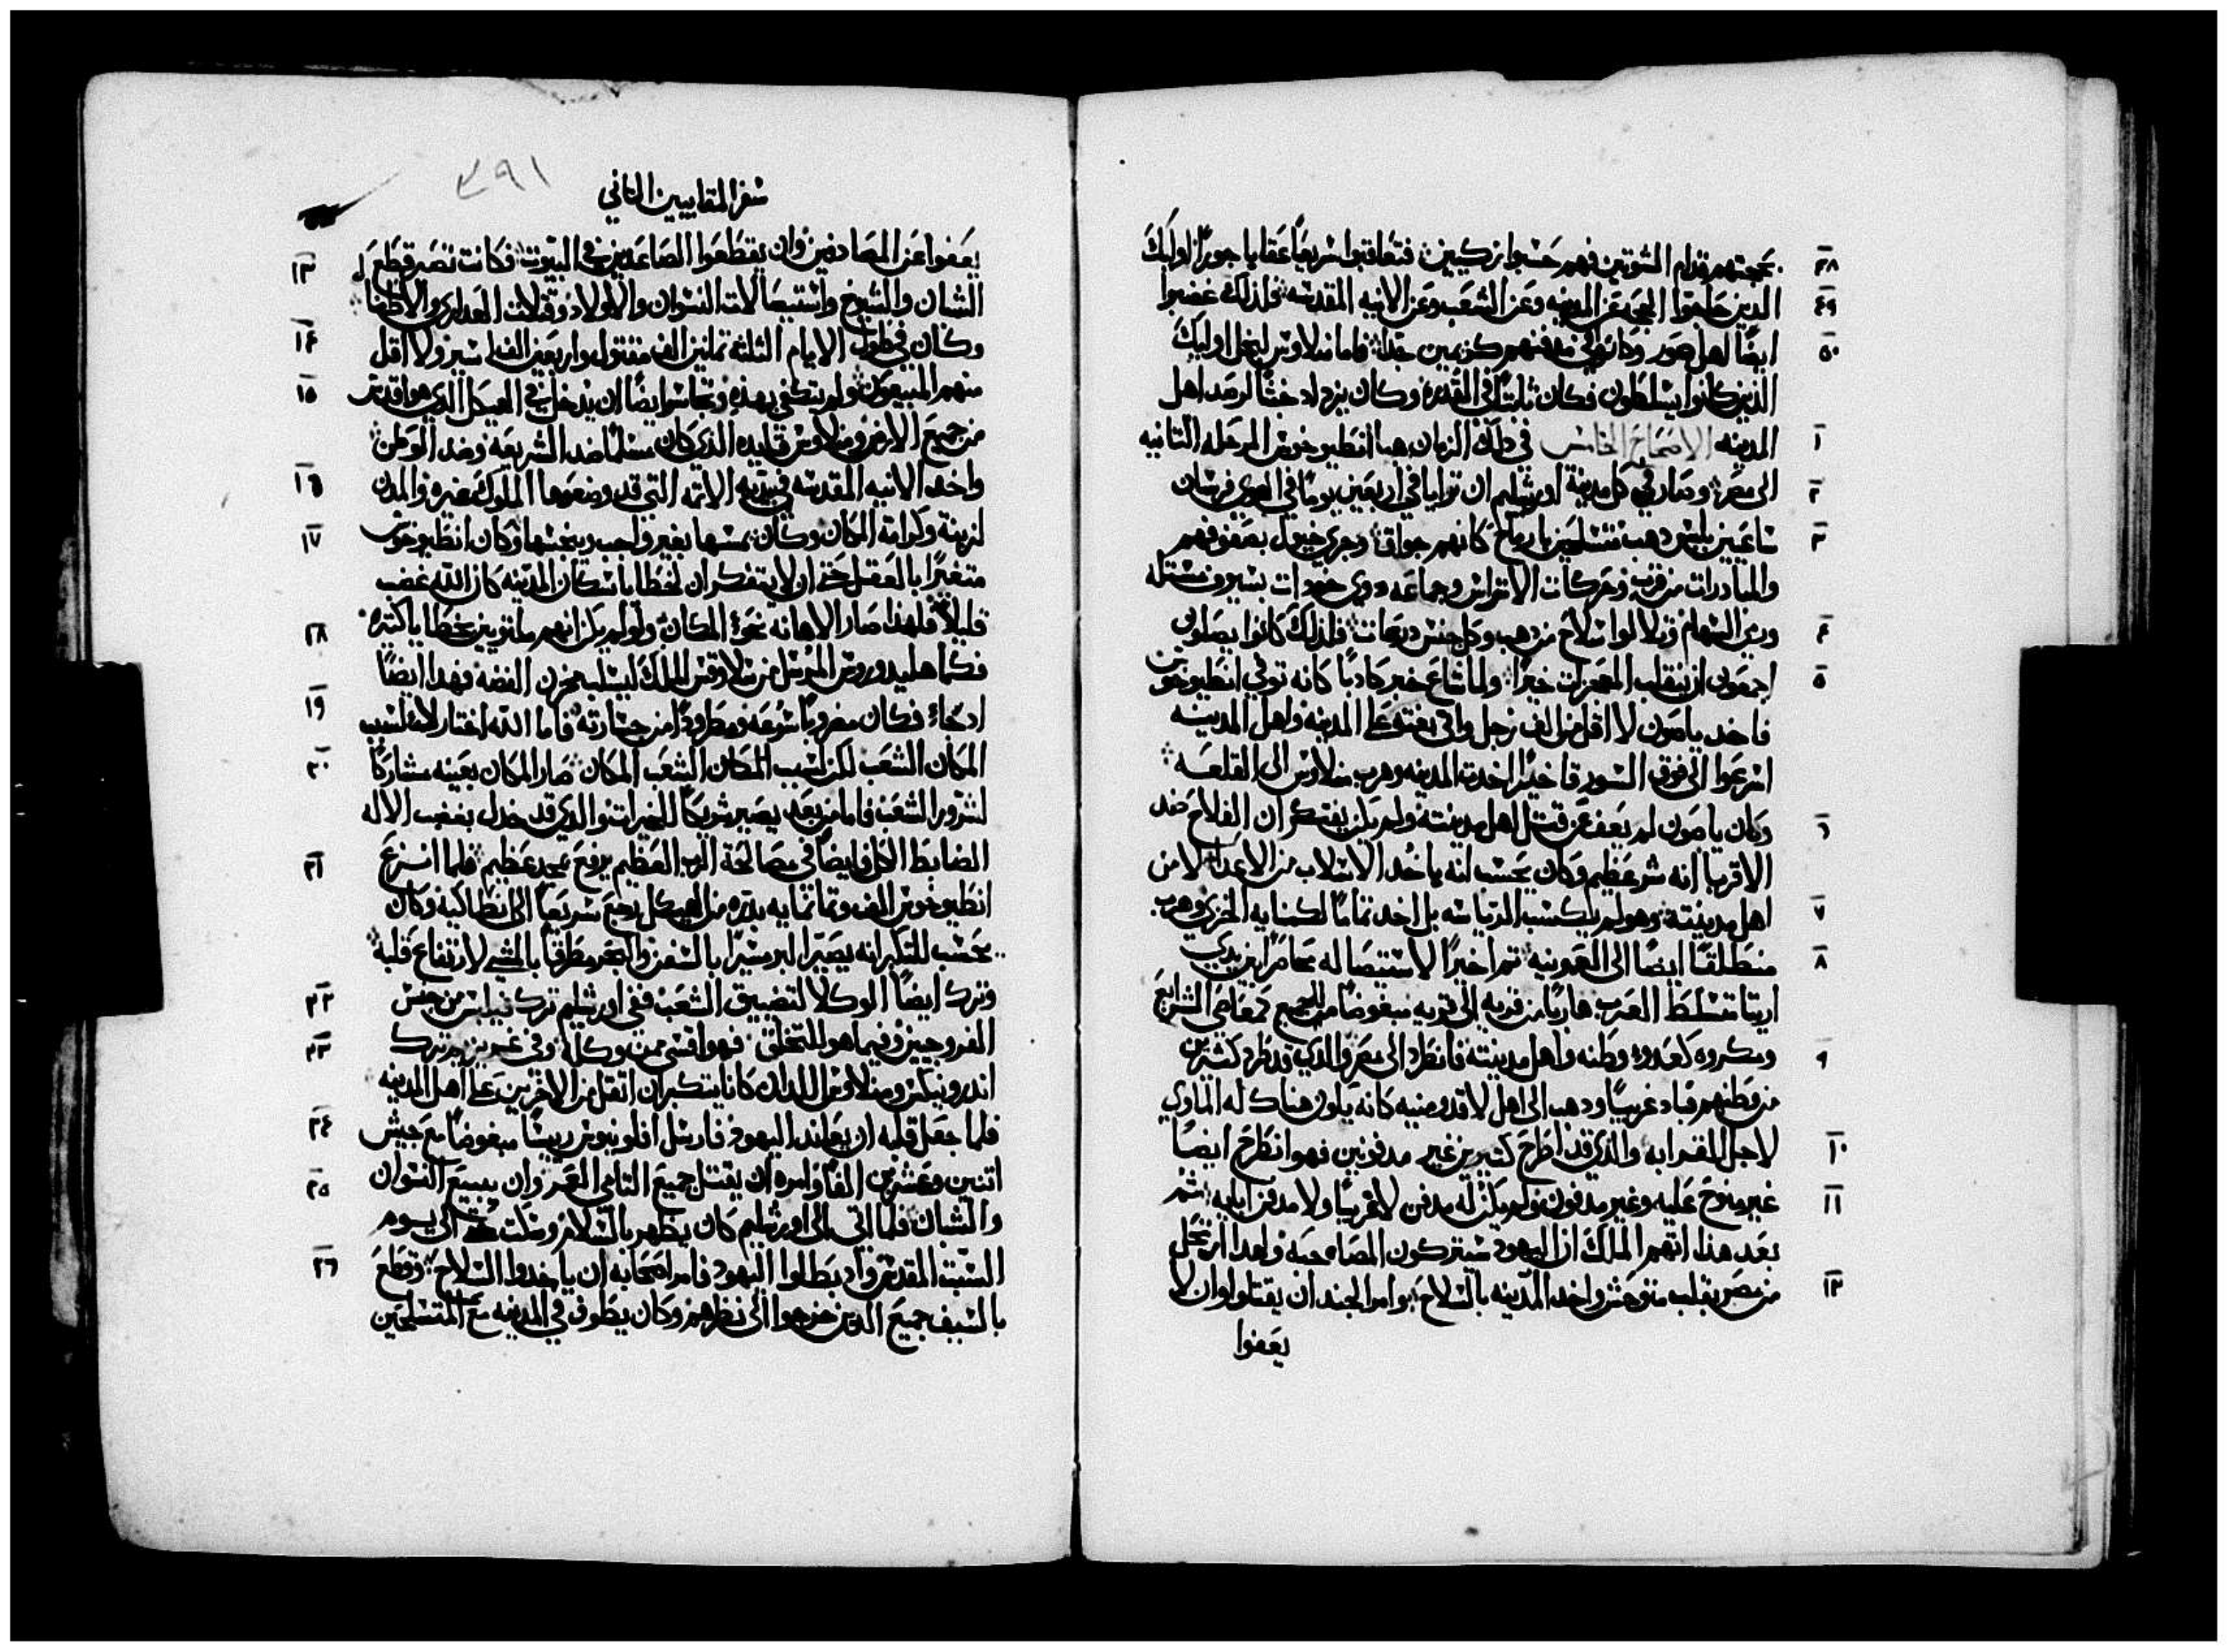 ٤٨ بحجتهم قدام الشوتيين فهم حسبوا زكيين فتعاقبوا سريعًا عقابا جورًا اوليك
٤٩ الدين حاموا الحجه عن المدينه وعن الشعب وعن الانيه المقدسه فلذلك غضبوا
٥٠ ايضًا اهل صور وكانوا في مدفنهم كريمين جدًا فاما منلاوس لبخل اوليك
الذين كانوا يتسلطون فكان ثابتًا في القدره وكان يزداد خبثًا لرصد اهل
١ المدينه الاصحاح الخامس في ذلك الزمان هيا انطيوخوس المرحله التانيه
٢ الى مصر وصار في كل مدينة اورشليم ان ترايا في اربعين يومًا في الهوى فرسان
٣ ساعيين بلبس دهب متسلحين بارماح كانهم جواق وجري خيول بصفوفهم
والمبادرات من قرب وحركات الاتراس وجماعه دوي خودات بسيوف مستله
٤ ورمي السهام وتلالوا سلاح من دهب وكل جنس دريعات فلذلك كانوا يصلون
٥ اجمعون ان تنقلب المعجزات خيرًا ولما شاع خبر كادبًا كانه توفي انطيوخوس
فاخد ياصون لا اقل من الف رجل واتى بغته على المدينه واهل المدينه
اسرعوا الى فوق السور فاخيرًا اخدت المدينه وهرب منلاوس الى القلعه
٦ وكان ياصون لم يعف عن قتل اهل مدينته ولم يكن يفتكر ان الفلاح ضد
الاقربا انه شر عظيم وكان يحسب انه ياخد الاسلاب من الاعدا لا من
٧ اهل مدينته وهو لم يكسب الرياسه بل اخد تمامًا لكمنايه الخزي وهرب
٨ منطلقًا ايضًا الى العمونيه تم اخيرًا لاستيصاله محاصرًا من يدي
اريتا متسلط العرب هاربًا من قريه الى قريه مبغوضًا من الجميع كمعاصي الشرايع
٩ ومكروه كعدو وطنه واهل مدينته فانطرد الى مصر والدي قد طرد كثيرين
من وطنهم فباد غريبًا ودهب الى اهل لاقدومنيه كانه يكون هناك له الماوي
١٠ لاجل القرابه والدي قد اطرح كتيرين غير مدفونين فهو انطرح ايضًا
١١ غير منوح عليه وغير مدفون ولم يكن له مدفن لا غريبًا ولا مدفن ابايه تم
بعد هذا اتهم الملك ان اليهود سيتركون المصاحبه ولهدا ارتحل
١٢ من مصر بقلب متوحش واخد المدينه بالسلاح وامر الجند ان يقتلوا وان لا
يعفوا
سفر المقابيين التاني
٣٩١
يعفوا عن المصادفين وان يقطعوا الصاعدين في البيوت
١٣ فكانت تصير قطع
الشبان والشيوخ واستيصالات النسوان والاولاد وقتلات العدارى والاطفال
١٤ وكان في طول الايام الثلثه تمانين الف مقتول واربعين الف اسير ولا اقل
١٥ منهم المبيعون ولم يتكفي بهده وتجاسر ايضًا ان يدخل في الهيكل الذي هو اقدس
من جميع الارض ومنلاوس قايده الذي كان مسلمًا ضد الشريعه وضد الوطن
١٦ واخد الانيه المقدسه بيديه الاتمه التي قد وضعوها الملوك غيره والمدن
١٧ لزينة وكرامة المكان وكان يمسها بغير واجب وينجسها وكان انطيوخوس
متغيرًا بالعقل حتى ان لا يتفكر ان لخطايا سكان المدينه كان الله غضب
١٨ قليلًا فلهذا صار الاهانه نحو المكان ولو لم يكن انهم ملتويين بخطايا كتيره
فكما هليودوروس المرسل من سلاوقس الملك ليسلب مخزن الفضه فهدا ايضًا
١٩ اد جاء فكان مضروبًا سرعه ومطرودًا من جسارته فاما الله اختار لا لسبب
٢٠ المكان الشعب لكن لسبب الشعب المكان صار المكان بعينه مشاركًا
لشرور الشعب فاما من بعد يصير شريكًا للخيرات والدي قد خدل بغضب الاله
٢١ الضابط الكل فايضًا في مصالحة الرب العظيم يرفع بمجد عظيم فلما انتزع
انطيوخوس الف وتمانمايه بدره من الهيكل رجع سريعًا الى انطاكيه وكان
يحسب للتكبر انه يصير البر مسيرًا بالسفن والبحر مطرقًا بالمشي لارتفاع قلبه
٢٢ وترك ايضًا الوكلا لتضييق الشعب ففي اورشليم ترك فيلبس من جنس
٢٣ الفروجيين وفيما هو للتخلق فهو اقسى من وكله وفي غريزيم ترك
اندرونيكس ومنلاوس اللدان كانا يتكبران اتقل من الاخرين على اهل المدينه
٢٤ فلما جعل قلبه ان يعاند اليهود فارسل افلونيوس رييسًا مبغوضًا مع جيش
٢٥ اتنين وعشرين الفًا وامره ان يقتل جميع التامي العمر وان يبيع النسوان
والشبان فلما اتى الى اورشليم كان يظهر بالسلام وسكت حتى الى يوم
٢٦ السبت المقدس واد بطلوا اليهود فامر اصحابه ان ياخدوا السلاح وقطع
بالسيف جميع الدين خرجوا الى نظرهم وكان يطوف في المدينه مع المتسلحين